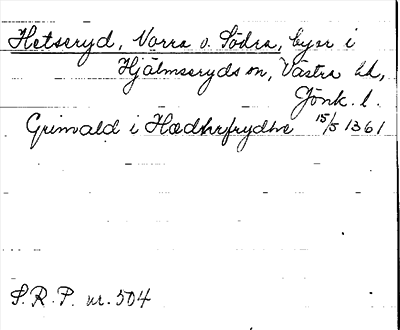 Hetseryd, Norra o. Södra, byar i
Hjälmseryds sn, Västra hd,
Jönk. l.
Grimald i Hædhrfrydhe 15/5 1361
S.R.P. nr. 504